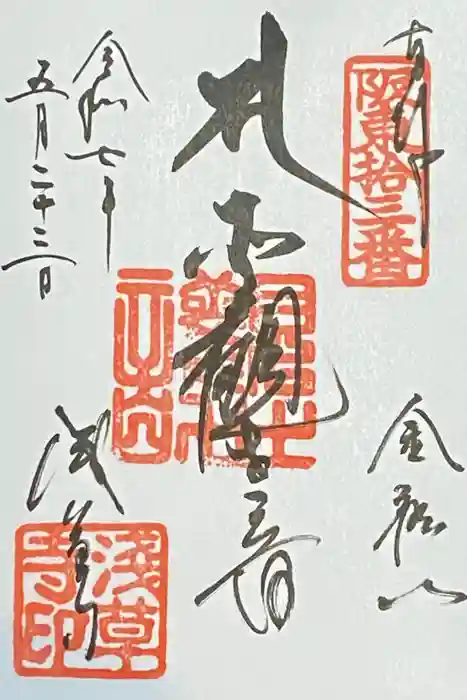 奉拝
阪東拾三番
金龍山
聖観世音
令和七年
五月二十三日
浅草寺
浅草寺印